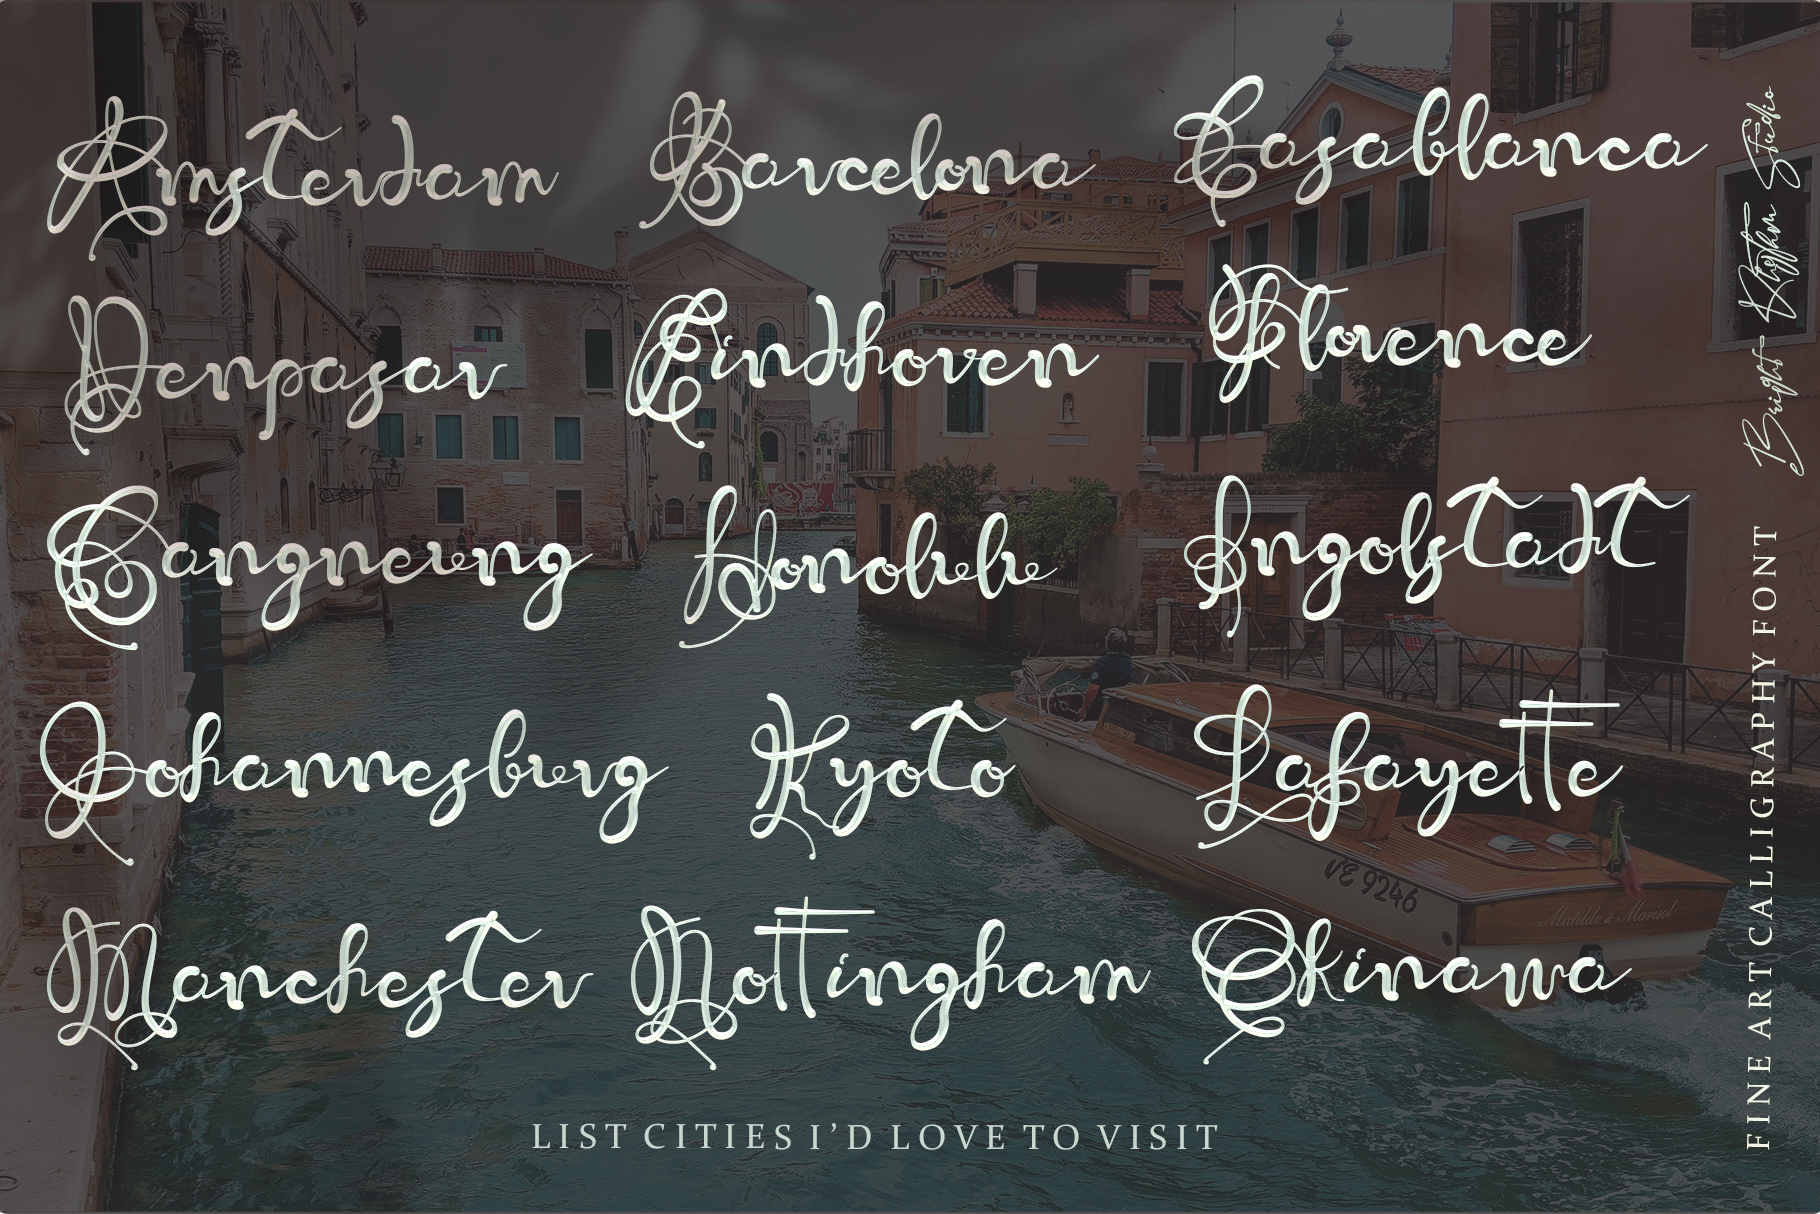 Amsterdam Barcelona Casablanca
Denpasar Eindhoven Florence
Gangneung Honolulu Ingolstadt
Johannesburg Kyoto Lafayette
Manchester Nottingham Okinawa
LIST CITIES I'D LOVE TO VISIT
FINE ART CALLIGRAPHY FONT
Bright Studio
VE 9246
Matilde & Marisol